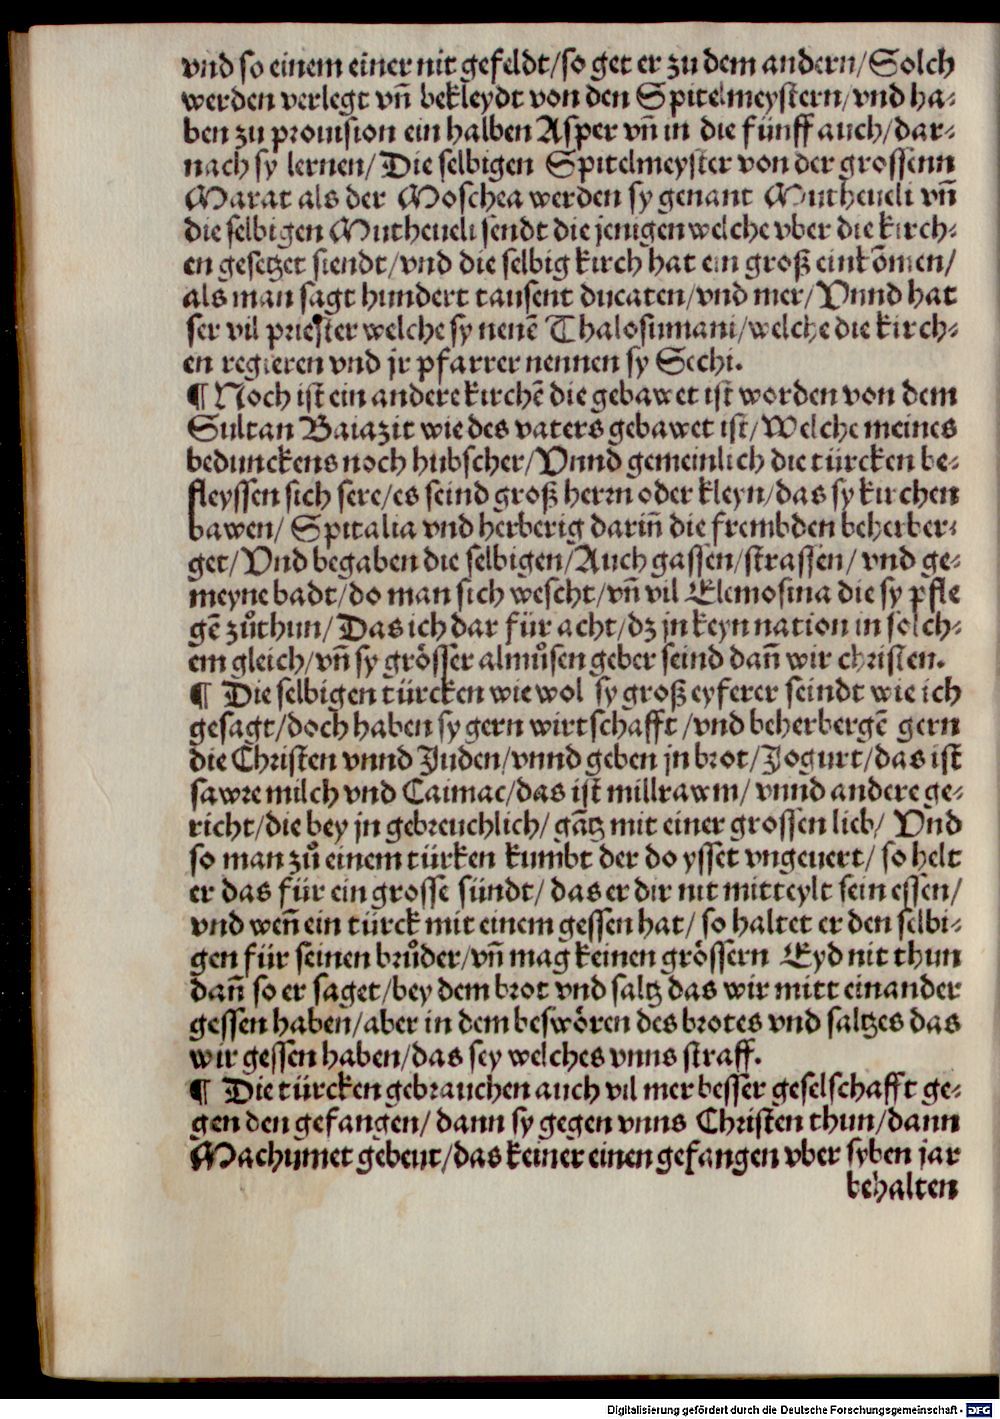 vnd so einem einer nit gefeldt/so get er zu dem andern/Solch
werden verlegt vn̄ bekleydt von den Spitelmeystern/vnd ha-
ben zu prouision ein halben Asper vn̄ in die fünff auch/dar-
nach sy lernen/Die selbigen Spitelmeyster von der grossenn
Marat als der Moschea werden sy genant Mutheueli vn̄
die selbigen Mutheueli sendt die jenigen welche vber die kirch-
en gesetzet siendt/vnd die selbig kirch hat ein groß einkōmen/
als man sagt hundert tausent ducaten/vnd mer/Vnnd hat
ser vil priester welche sy nenē Thalosumani/welche die kirch-
en regieren vnd jr pfarrer nennen sy Sechi.
¶ Noch ist ein andere kirchē die gebawet ist worden von dem
Sultan Baiazit wie des vaters gebawet ist/Welche meines
bedunckens noch hubscher/Vnnd gemeinlich die türcken be-
fleyssen sich sere/es seind groß herrn oder kleyn/das sy kirchen
bawen/ Spitalia vnd herberig darin̄ die frembden beherber-
get/Vnd begaben die selbigen/Auch gassen/strassen/ vnd ge-
meyne badt/do man sich wescht/vn̄ vil Elemosina die sy pfle
gē zůthun/Das ich dar für acht/dz jn keyn nation in solch-
em gleich/vn̄ sy grösser almůsen geber seind dan̄ wir christen.
¶ Die selbigen türcken wie wol sy groß eyferer seindt wie ich
gesagt/doch haben sy gern wirtschafft/vnd beherbergē gern
die Christen vnnd Juden/vnnd geben jn brot/Jogurt/das ist
sawre milch vnd Caimac/das ist millrawm/ vnnd andere ge-
richt/die bey jn gebreuchlich/gātz mit einer grossen lieb/ Vnd
so man zů einem türken kumbt der do ysset vngeuert/ so helt
er das für ein grosse sündt/ das er dir nit mitteylt sein essen/
vnd wen̄ ein türck mit einem gessen hat/ so haltet er den selbi-
gen für seinen brůder/vn̄ mag keinen grössern Eyd nit thun
dan̄ so er saget/bey dem brot vnd saltz das wir mitt einander
gessen haben/aber in dem beswören des brotes vnd saltzes das
wir gessen haben/das sey welches vnns straff.
¶ Die türcken gebrauchen auch vil mer besser geselschafft ge-
gen den gefangen/ dann sy gegen vnns Christen thun/dann
Machumet gebeut/das keiner einen gefangen vber syben jar
behalten
Digitalisierung gefördert durch die Deutsche Forschungsgemeinschaft - DFG